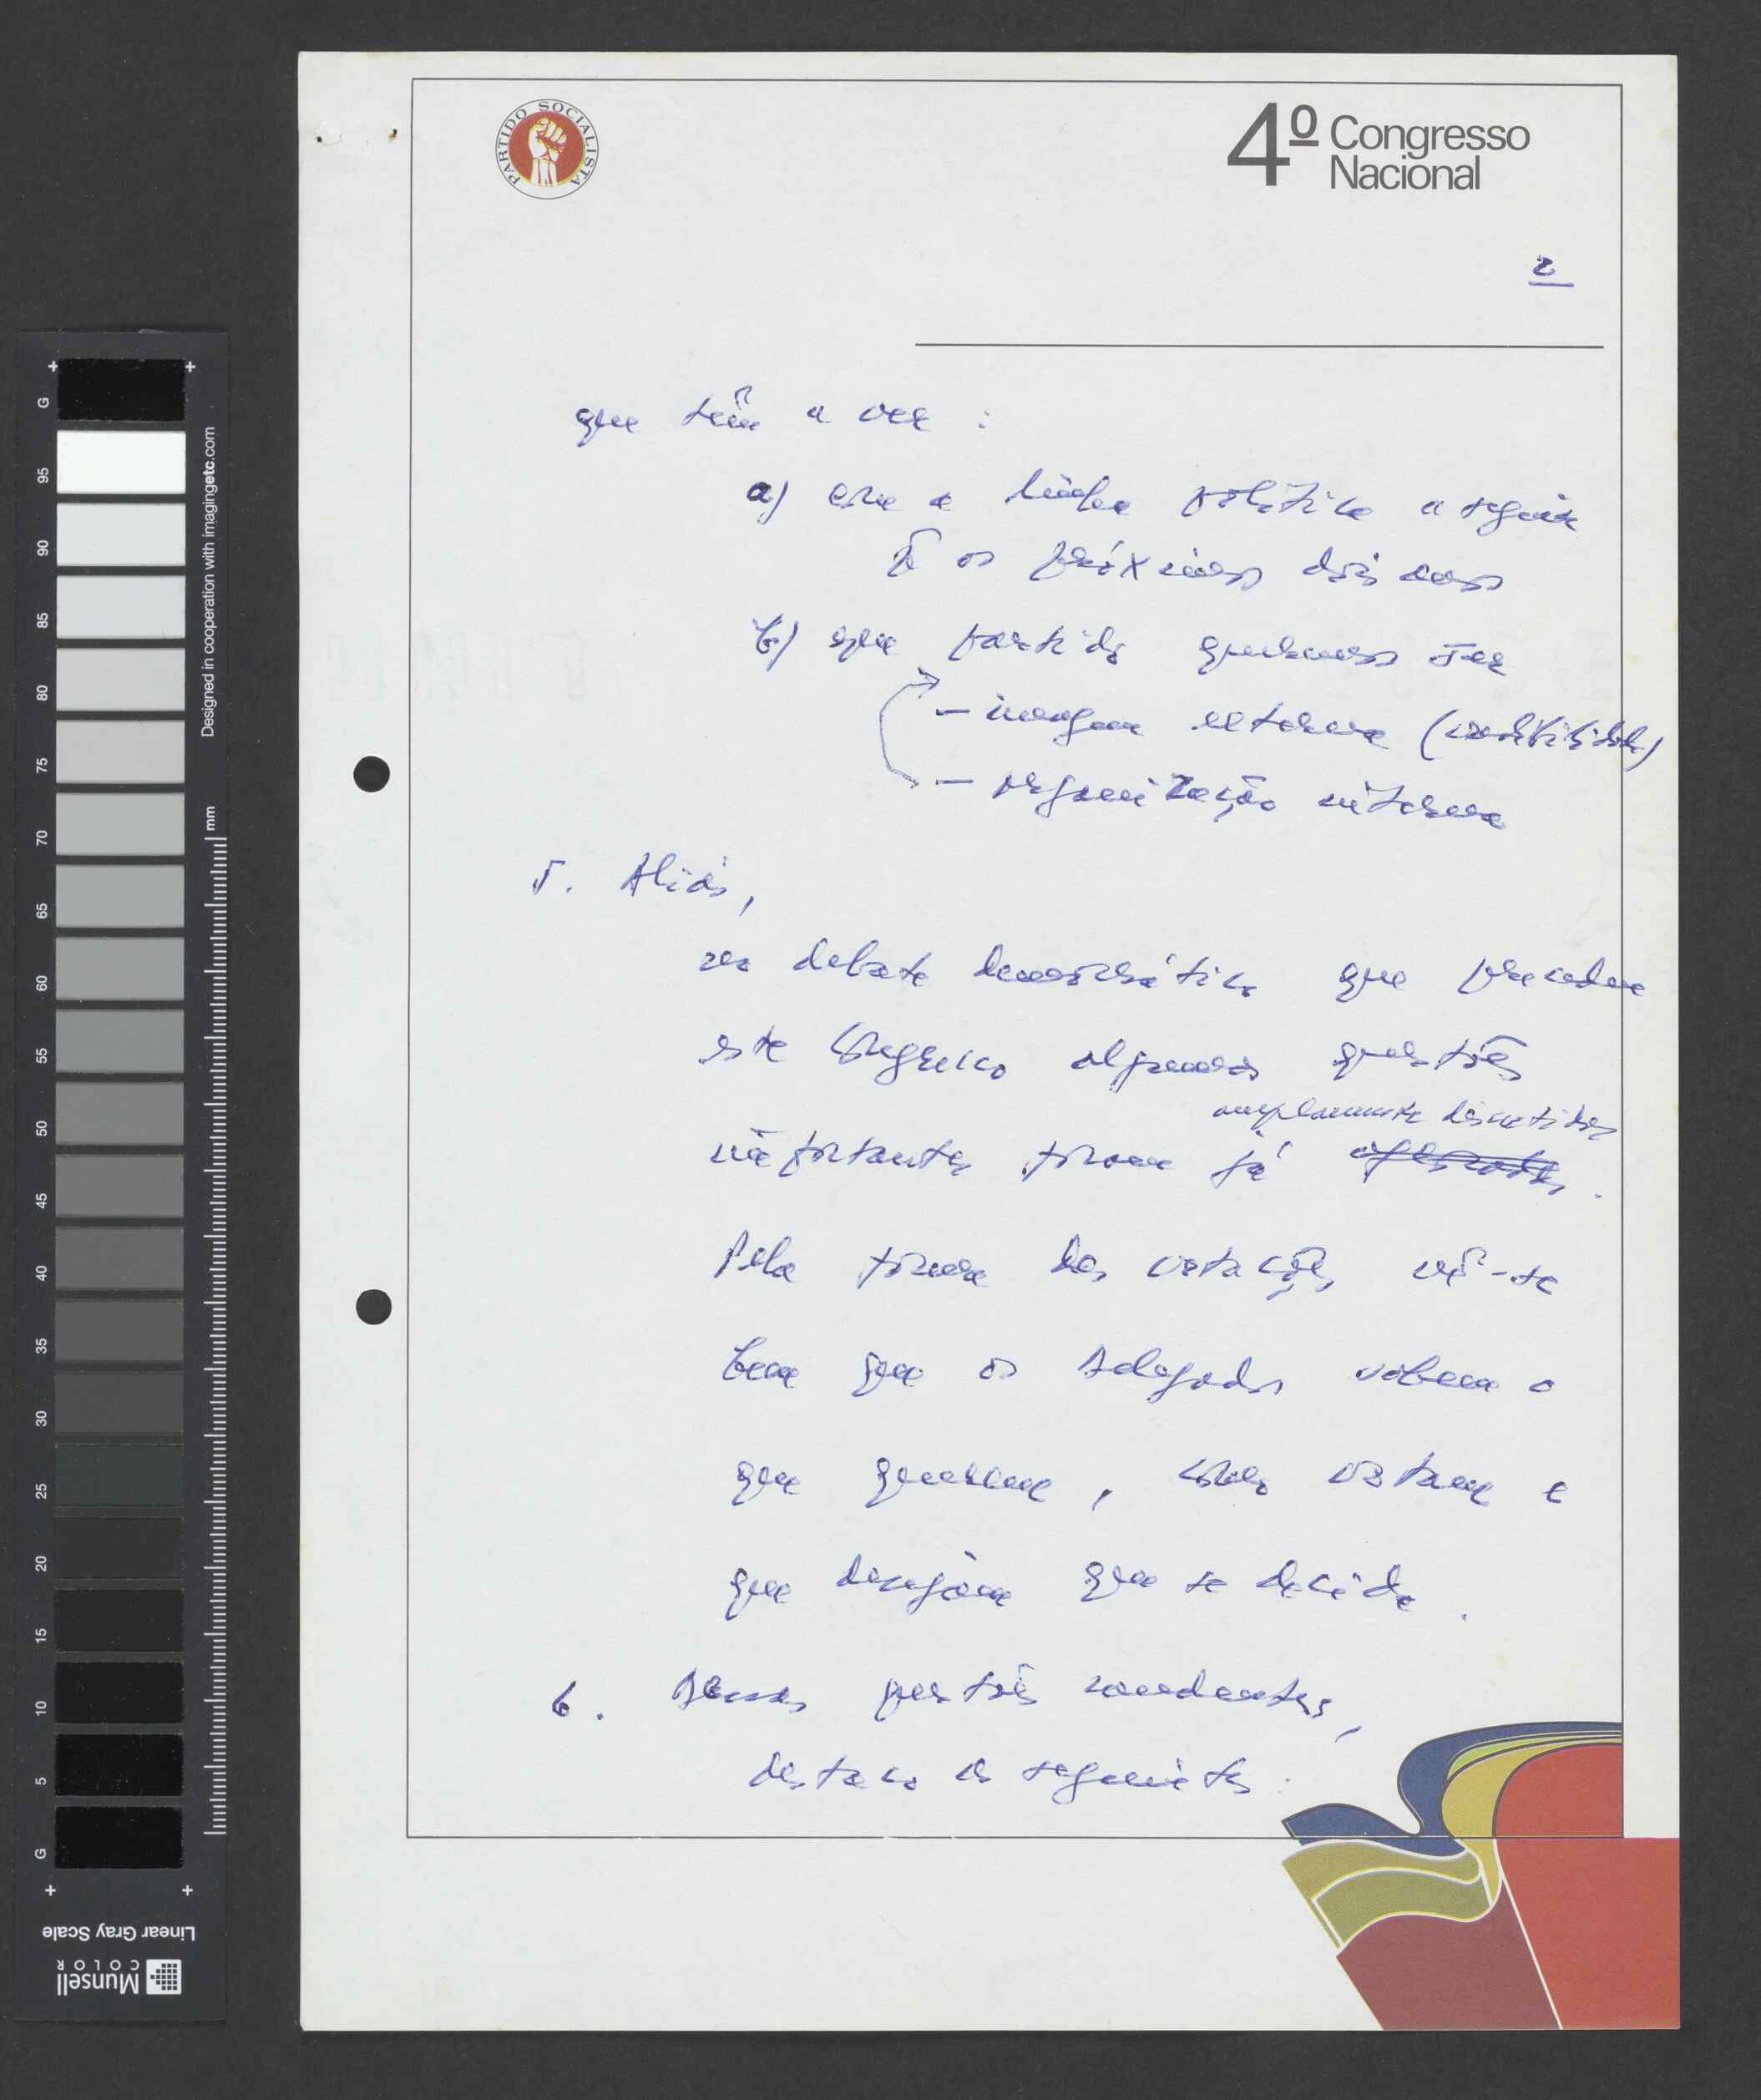 PARTIDO SOCIALISTA
4º Congresso
Nacional
2
que têm a ver :
a) com a linha política a seguir
p̃ os próximos dois anos
b) que partido queremos ser
– imagem externa (credibilidade)
– organização interna
5. Aliás,
no debate democrático que precedeu
este Congresso algumas questões
amplamente discutidas
importantes foram já
Pela forma das votações, vê-se
bem que os delegados sabem o
que querem, votam e
que desejam que se decida.
6. questões candentes,
destaco as seguintes :
Designed in cooperation with imagingetc.com
mm
G
95
90
85
80
75
70
65
60
55
50
45
40
35
30
25
20
15
10
5
G
Linear Gray Scale
Munsell
COLOR